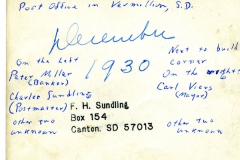 Post Office in Vermillion, S.D.
December
1930
On the Left
Peter Miller
(Banker)
Charles Sundling
(Postmaster)
other two
unknown
Next to build
corner
On the right:
Carl Viers
(Mayor)
other two
unknown
F. H. Sundling
Box 154
Canton, SD 57013